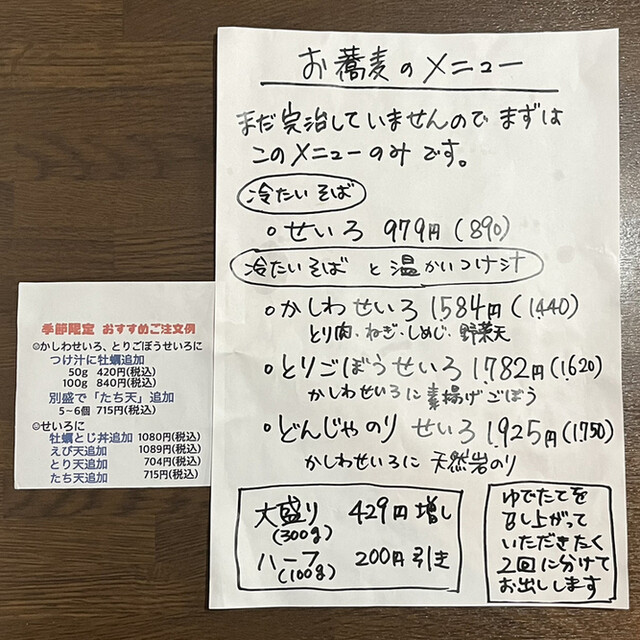 お蕎麦のメニュー
まだ完治していませんので まずは
このメニューのみ です。
冷たい そば
○ せいろ 979円 (890)
冷たい そば と 温かいつけ汁
○ かしわせいろ 1584円 (1,440)
とり肉・ねぎ・しめじ・野菜天
○ とりごぼうせいろ 1,782円 (1,620)
かしわせいろに素揚げごぼう
○ どんじゃのり せいろ 1,925円 (1,750)
かしわせいろに 天然岩のり
大盛り 429円 増し
(300g)
ハーフ 200円 引き
(100g)
ゆでたてを
召し上がって
いただきたく
2回に分けて
お出しします
季節限定 おすすめご注文例
◎かしわせいろ、とりごぼうせいろに
つけ汁に牡蠣追加
50g 420円(税込)
100g 840円(税込)
別盛で「たち天」追加
5~6個 715円(税込)
◎せいろに
牡蠣とじ丼追加 1080円(税込)
えび天追加 1089円(税込)
とり天追加 704円(税込)
たち天追加 715円(税込)